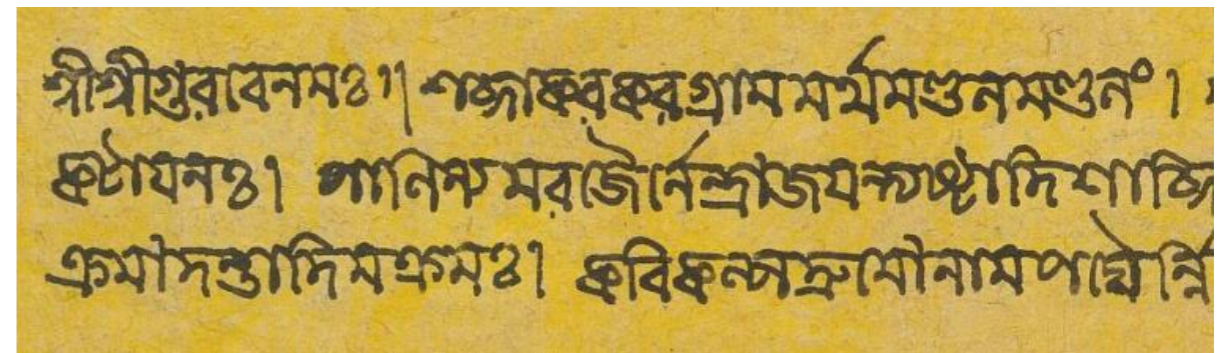 শ্রীশ্রীগুরবেনমঃ॥ শব্দাকরকরগ্রামমর্থমণ্ডনমণ্ডনং।
কটাযনঃ। পাণিন্যমরজৈর্নেন্দ্রাজযন্ত্যষ্টাদিশাব্দি
ক্রমাদন্তাদিমক্রমঃ। কবিকল্পদ্রুমোনামপদ্যৈর্ন্নি